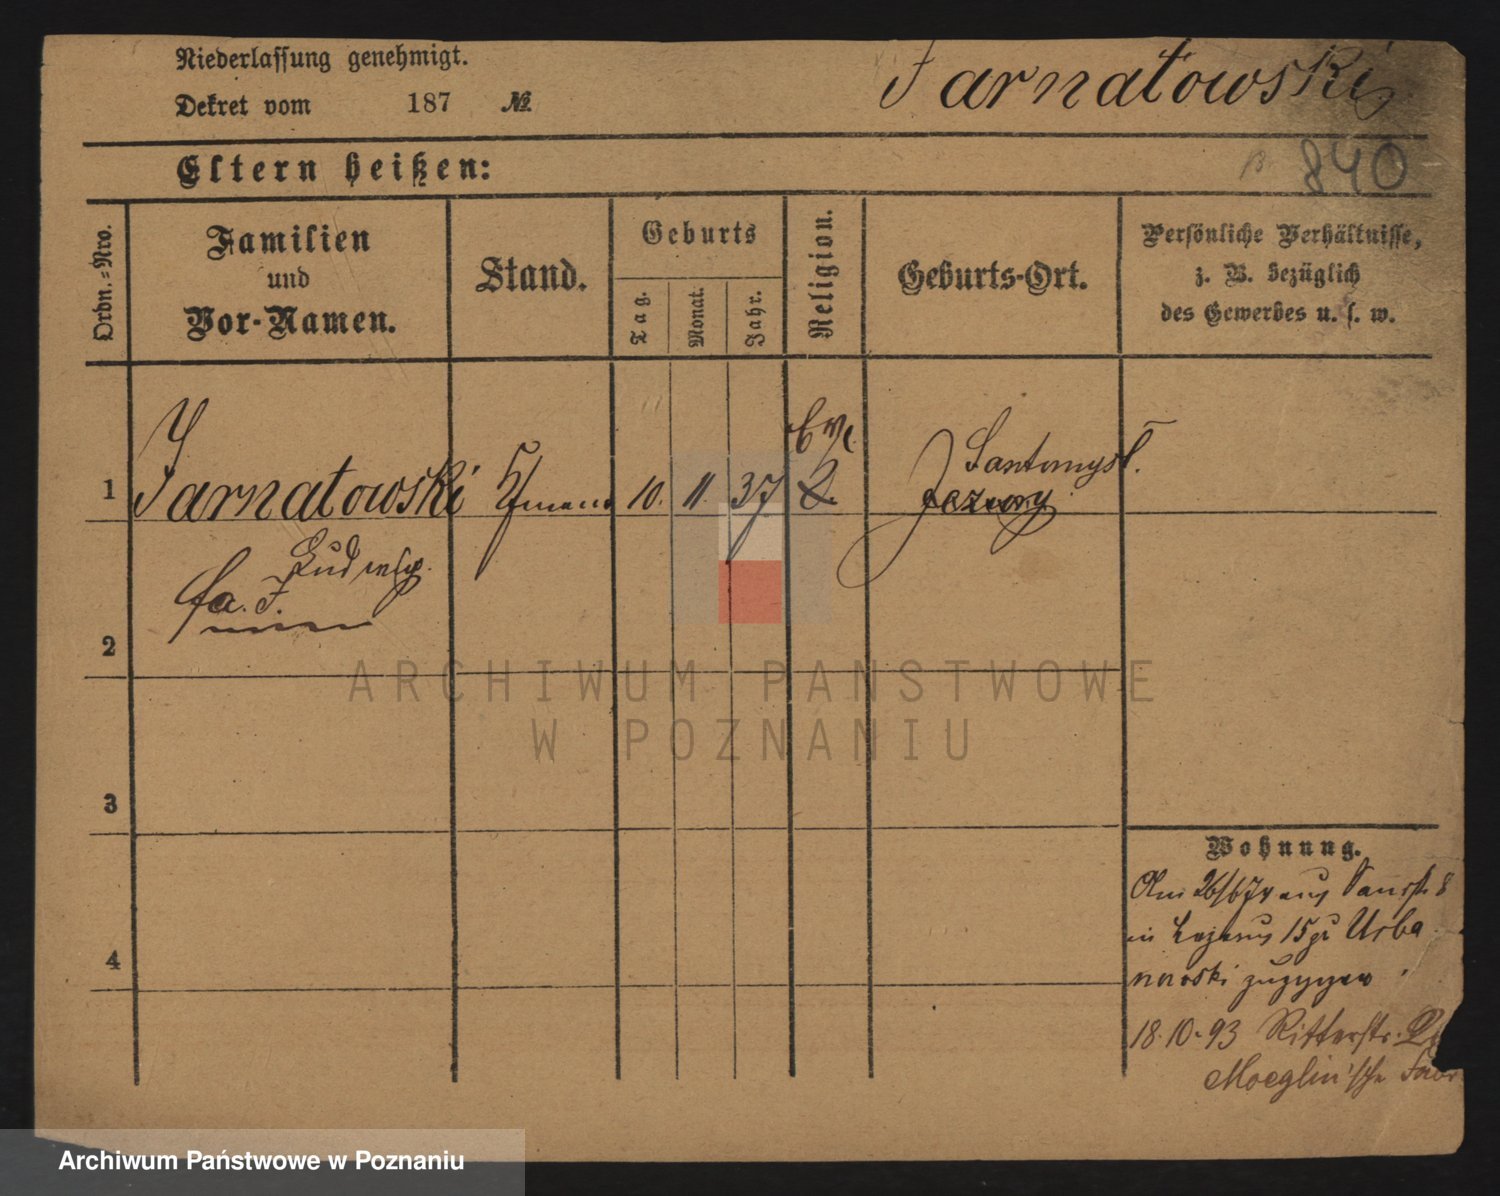 Niederlassung genehmigt.
Dekret vom 187 №
Jarnatowski
840
Eltern heißen:
Ordn.=Nro.
Familien
und
Vor-Namen.
Stand.
Geburts
Tag.
Monat.
Jahr.
Religion.
Geburts-Ort.
Persönliche Verhältnisse,
z. B. bezüglich
des Gewerbes u. s. w.
1
Jarnatowski
10. 11. 37
Ev.
Santomysl.
Jeziory
Ludwig.
fa. J.
2
3
4
Wohnung.
Am 26/6 74 aus
in 15 zu Urba
nowski zugezogen
18.10.93 Ritterstr.
Moeglin'sche
ARCHIWUM PAŃSTWOWE
W POZNANIU
Archiwum Państwowe w Poznaniu